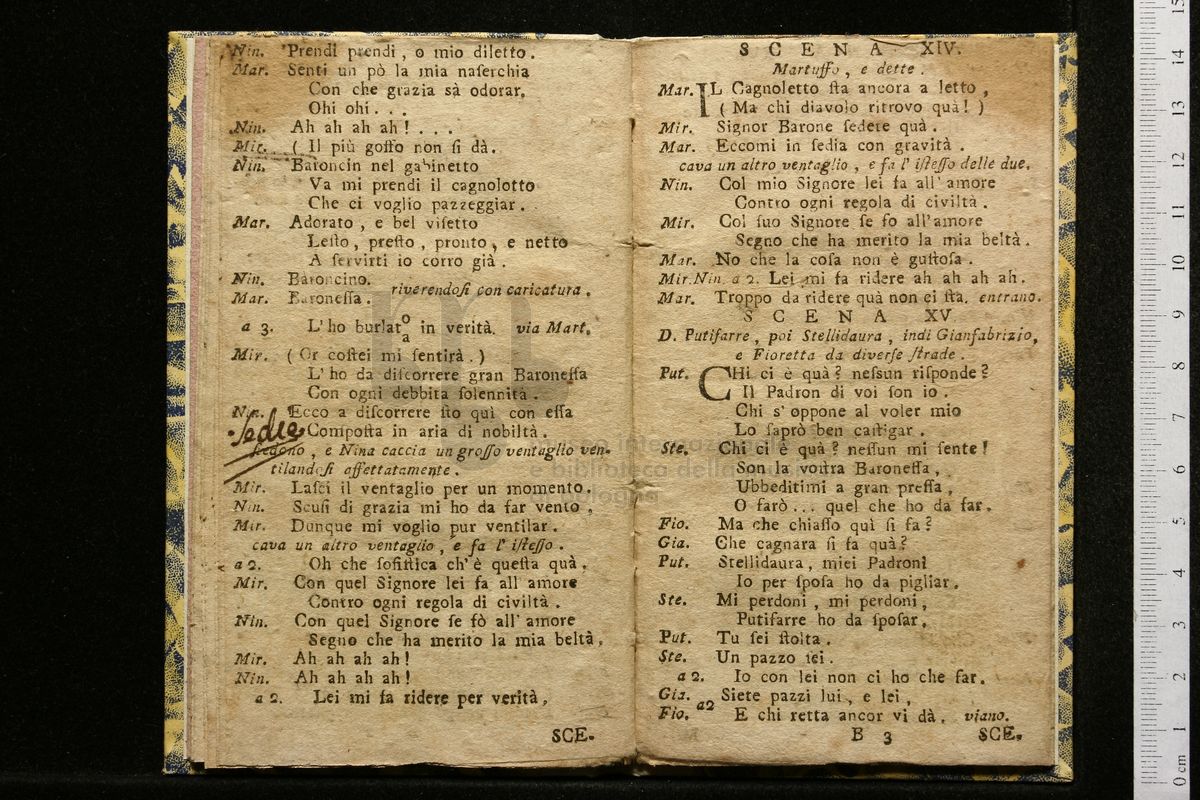 Nin. Prendi prendi, o mio diletto.
Mar. Senti un pò la mia naſerchia
Con che grazia sà odorar.
Ohi ohi...
Nin. Ah ah ah ah!...
Mir. (Il più goffo non ſi dà.
Nin. Baroncin nel gabinetto
Va mi prendi il cagnolotto
Che ci voglio pazzeggiar.
Mar. Adorato, e bel viſetto
Leſto, preſto, pronto, e netto
A ſervirti io corro già.
Nin. Baroncino.
riverendoſi con caricatura.
Mar. Baroneſſa.
a 3. L'ho burlat o/a in verità. via Mart.
Mir. (Or coſtei mi ſentirà.)
L'ho da diſcorrere gran Baroneſſa
Con ogni debbita ſolennità.
Nin. Ecco a diſcorrere ſto quì con eſſa
Sedie
Compoſta in aria di nobiltà.
ſedono, e Nina caccia un groſſo ventaglio ven-
tilandoſi affettatamente.
Mir. Laſci il ventaglio per un momento.
Nin. Scuſi di grazia mi ho da far vento,
Mir. Dunque mi voglio pur ventilar.
cava un altro ventaglio, e fa l'iſteſſo.
a 2. Oh che ſofiſtica ch'è queſta quà,
Mir. Con quel Signore lei fa all amore
Contro ogni regola di civiltà.
Nin. Con quel Signore ſe fò all'amore
Segno che ha merito la mia beltà,
Mir. Ah ah ah ah!
Nin. Ah ah ah ah!
a 2. Lei mi fa ridere per verità,
SCE-
SCENA XIV.
Martuffo, e dette.
Mar. IL Cagnoletto ſta ancora a letto,
(Ma chi diavolo ritrovo quà!)
Mir. Signor Barone ſedete quà.
Mar. Eccomi in ſedia con gravità.
cava un altro ventaglio, e fa l'iſteſſo delle due.
Nin. Col mio Signore lei fa all'amore
Contro ogni regola di civiltà.
Mir. Col ſuo Signore ſe fo all'amore
Segno che ha merito la mia beltà.
Mar. No che la coſa non è guſtoſa.
Mir. Nin. a 2. Lei mi fa ridere ah ah ah ah.
Mar. Troppo da ridere quà non ci ſta. entrano.
SCENA XV.
D. Putifarre, poi Stellidaura, indi Gianfabrizio,
e Fioretta da diverſe ſtrade.
Put. CHi ci è quà? neſſun riſponde?
Il Padron di voi ſon io.
Chi s'oppone al voler mio
Lo ſaprò ben caſtigar.
Ste. Chi ci è quà? neſſun mi ſente!
Son la voſtra Baroneſſa,
Ubbeditimi a gran preſſa,
O farò... quel che ho da far.
Fio. Ma che chiaſſo quì ſi fa?
Gia. Che cagnara ſi fa quà?
Put. Stellidaura, miei Padroni
Io per ſpoſa ho da pigliar.
Ste. Mi perdoni, mi perdoni,
Putifarre ho da ſpoſar.
Put. Tu ſei ſtolta.
Ste. Un pazzo ſei.
a 2. Io con lei non ci ho che far.
Gia. Siete pazzi lui, e lei,
a2
Fio. E chi retta ancor vi dà. viano.
B 3 SCE-
museo internazionale
e biblioteca della
bologna
0 cm 1 2 3 4 5 6 7 8 9 10 11 12 13 14 15